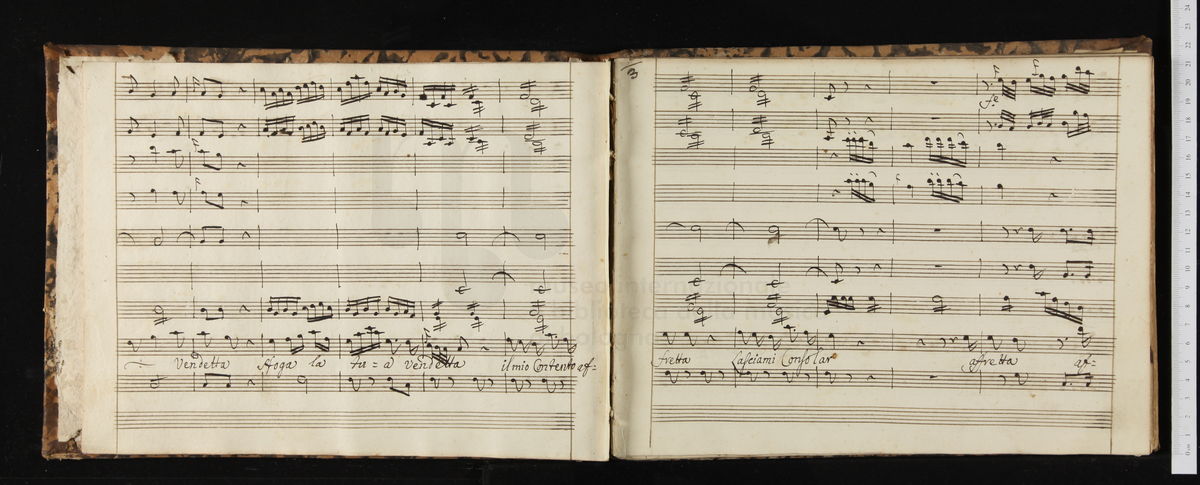 Vendetta Sfoga la tu=a Vendetta il mio Contento af=
3
fe
fretta Lasciami Consolar affretta af=
museo internazionale
biblioteca della musica
bologna